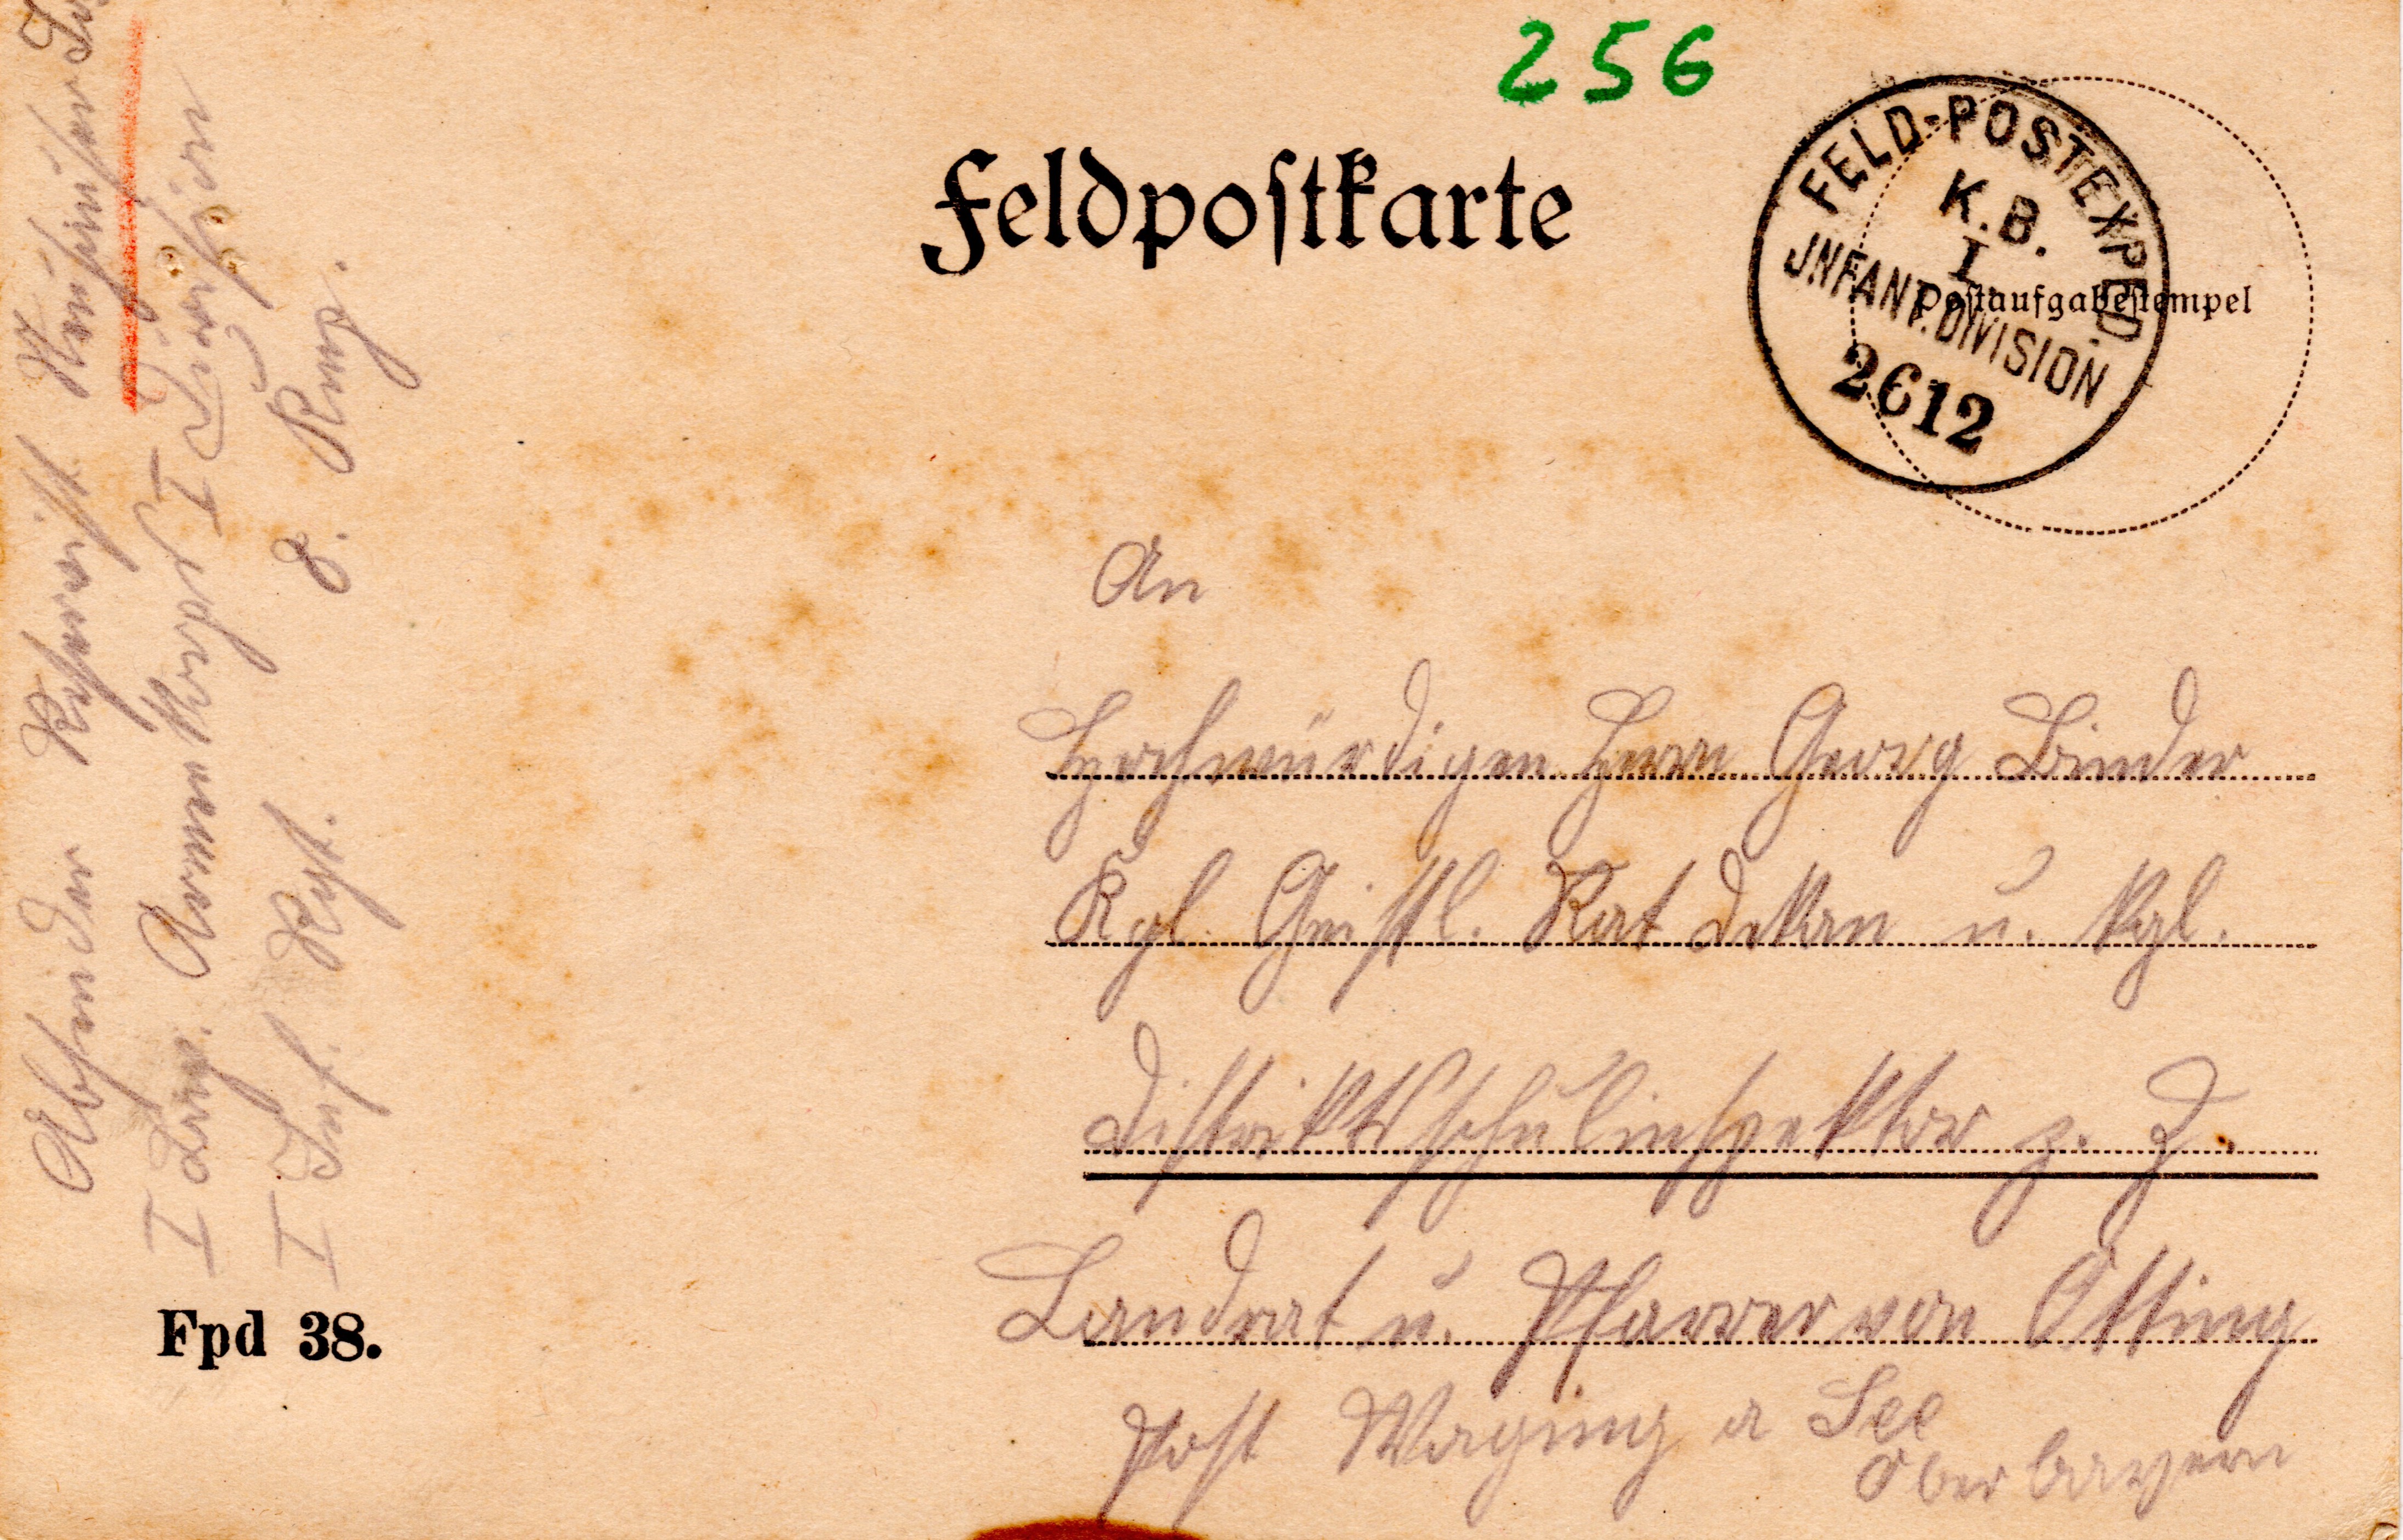 256
Feldpostkarte
FELD-POSTEXPED.
K.B.
I.
INFANT. DIVISION
2612
Postaufgabestempel
An
Hochwürdigen Herrn Georg Binder
Kgl. Geistl. Rat Dekan u. kgl.
Distriktsschulinspektor z. Z.
Landrat u. Pfarrer von Otting
Post Waging a See
Oberbayern
Absender Reservist
I Bay. Armee Korps I Division
I Inf. Rgt. 8. Komp.
Fpd 38.